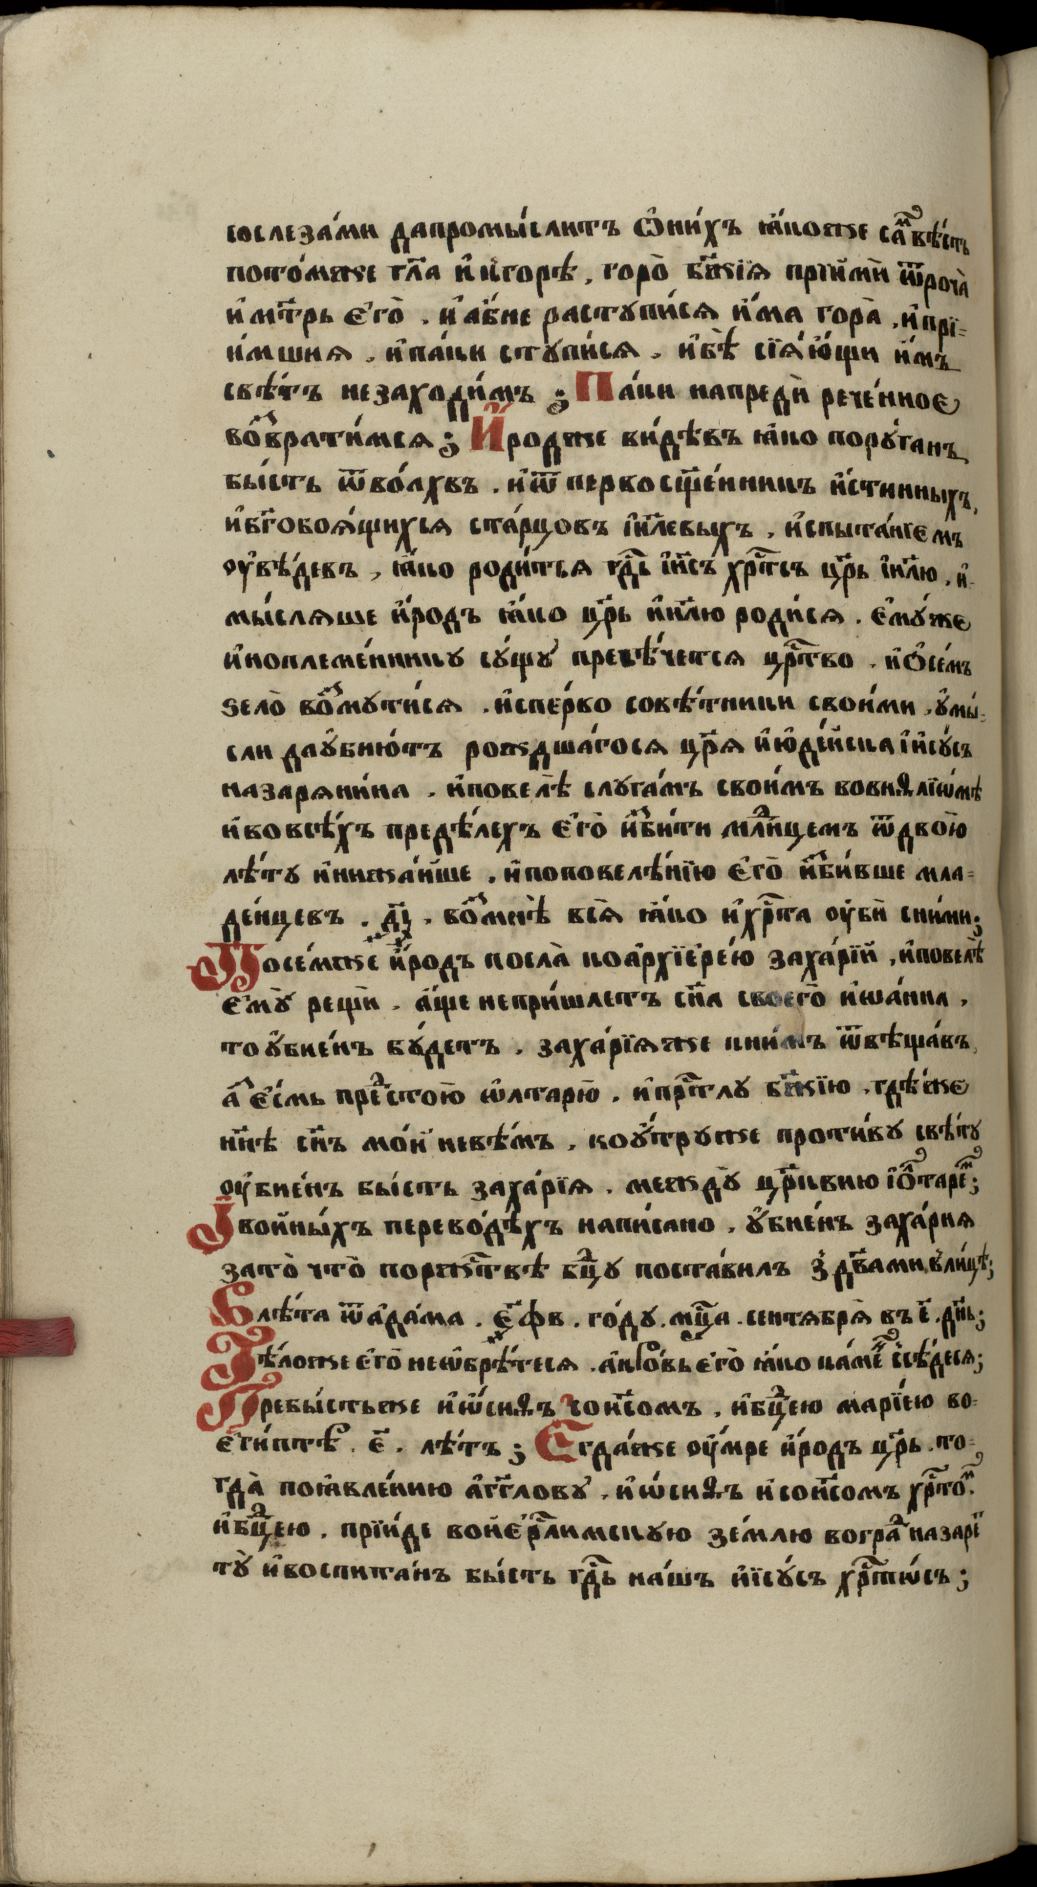 сослеза́ми дапромы́слитъ ѡ҆ни́хъ ꙗ҆́коже са́мъ вѣ́сть
пото́мже гл҃а и҆ кгорѣ̀, горо̀ бж҃їѧ прїи҆мѝ ѿроча̀
и҆ мт҃рь є҆го̀. и҆ а҆́бие растꙋпи́сѧ и҆́ма гора̀, и҆ прї=
и҆́мшиѧ. и҆ па́ки стꙋпи́сѧ. и҆ бѣ̀ сїѧ́ющи и҆́мъ
свѣ́тъ незаходи́мъ; Па́ки напредѝ рече́нное
возврати́мсѧ; И҆́родже ви́дѣвъ ꙗ҆́ко порꙋ́ганъ
бы́сть ѿво́лхвъ. и҆ ѿ первосщ҃е́нникъ и҆́стинныхъ,
и҆ бг҃обоѧ́щихсѧ ста́рцовъ і҆и҃левыхъ, и҆спыта́нїемъ
оу҆вѣ́девъ, ꙗ҆́ко роди́тьѧ гд҃ь і҆и҃съ хр҃тсъ цр҃ь і҆и҃лю, и҆
мы́слѧше и҆́родъ ꙗ҆́ко цр҃ь и҆и҃лю роди́сѧ. є҆мꙋ́же
и҆ноплеме́нникꙋ сꙋ́щꙋ пресѣ́четсѧ цр҃тво. и҆ ѡ҆се́мъ
ѕело̀ возмꙋти́сѧ. и҆спе́рво совѣ́тники свои́ми, ꙋ҆мы́=
сли даꙋ҆бию́тъ рожд̾ша́госѧ цр҃ѧ и҆ю҆де́йска і҆и҆сꙋ́съ
назарѧни́на. и҆ повелѣ̀ слꙋга́мъ свои́мъ вовиѳлїѡ́мѣ
и҆ вовсѣ́хъ предѣ́лехъ є҆го̀ и҆зби́ти млⷣнцемъ ѿдвою̀
лѣ́тꙋ и҆ нижа́йше, и҆ поповелѣ́нїю є҆го̀ и҆зби́вше мла=
де́нцевъ. д҃і. возмнѣ̀ всѧ̀ ꙗ҆́ко и҆ хр҃та оу҆бѝ сни́ми;
Посе́мже и҆́родъ посла̀ коа҆рхїере́ю заха́рїй, и҆ повелѣ̀
є҆мꙋ̀ рещѝ. а҆́ще непри́шлетъ сн҃а своего̀ и҆ѡа́нна,
тоꙋ҆бие́нъ бꙋ́детъ. заха́рїѧже кни́мъ ѿвѣща́въ,
а҆́зъ є҆́смь предстою̀ ѡ҆лтарю̀. и҆ прⷭ҇тлꙋ бж҃їю, гдѣ́же
нн҃ѣ сн҃ъ мо́й невѣ́мъ, коꙋ҆́трꙋже проти́вꙋ свѣ́тꙋ
оу҆бие́нъ бы́сть заха́рїѧ. междꙋ̀ цр҃ковию і҆ ѻ҆лтаре́мъ;
І҆ войны́хъ перево́дѣхъ напи́сано, ꙋ҆бие́нъ заха́риѧ
зато̀ что̀ порожⷣствѣ бц҃ꙋ поста́вилъ з̾ дв҃ами, в̾ли́цѣ;
В лѣ́та ѿа҆да́ма. ҂є҃фв. го́дꙋ. мцⷭ҇а. сентѧбрѧ̀ въ є҃. дн҃ь;
Тѣ́ложе є҆го̀ неѡ҆брѣ́тесѧ. а҆ кро́вь є҆го̀ ꙗ҆́ко ка́мень ѡ҆сѣ́десѧ;
Пребы́стьже и҆ ѡ҆́сиѳъ соис҃омъ, и҆ бцⷣею марїею во=
є҆ги́птѣ. є҃. лѣ́тъ; Є҆гда́же оу҆́мре и҆́родъ цр҃ь. то=
гда̀ поꙗ҆вле́нию а҆́гг҃ловꙋ. и҆ ѡ҆́сиѳъ и҆ соис҃омъ хр҃то́мъ.
и҆ бцⷣею. прїи́де вои҆єрⷭ҇ли́мскꙋю зе́млю вогра́дъ назаре́=
тꙋ̀ и҆ воспита́нъ бы́сть гд҃ь на́шъ и҆їсꙋ́съ хрⷭ҇то́съ;